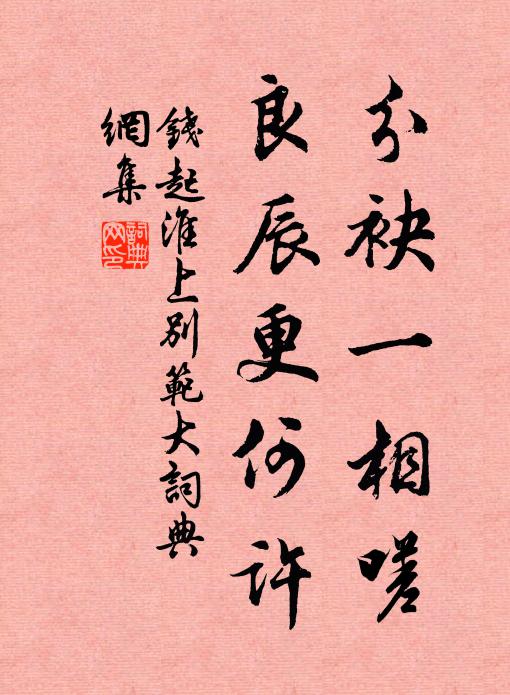 分袂一相嗟
良辰更何許
錢起淮上別範大詞典
網集
詞典網印